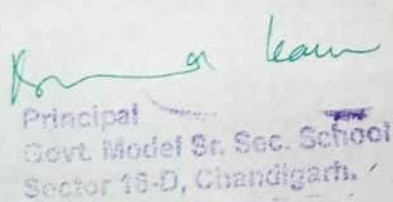 Kaur
Principal
Govt. Model Sr. Sec. School
Sector 16-D, Chandigarh.